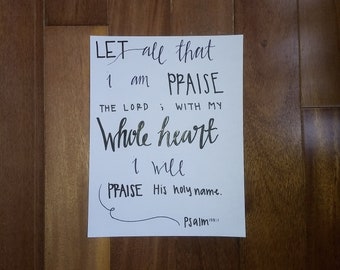 LET all that
I am PRAISE
THE LORD ; WITH MY
Whole heart
I will
PRAISE His holy name.
Psalm 103:1